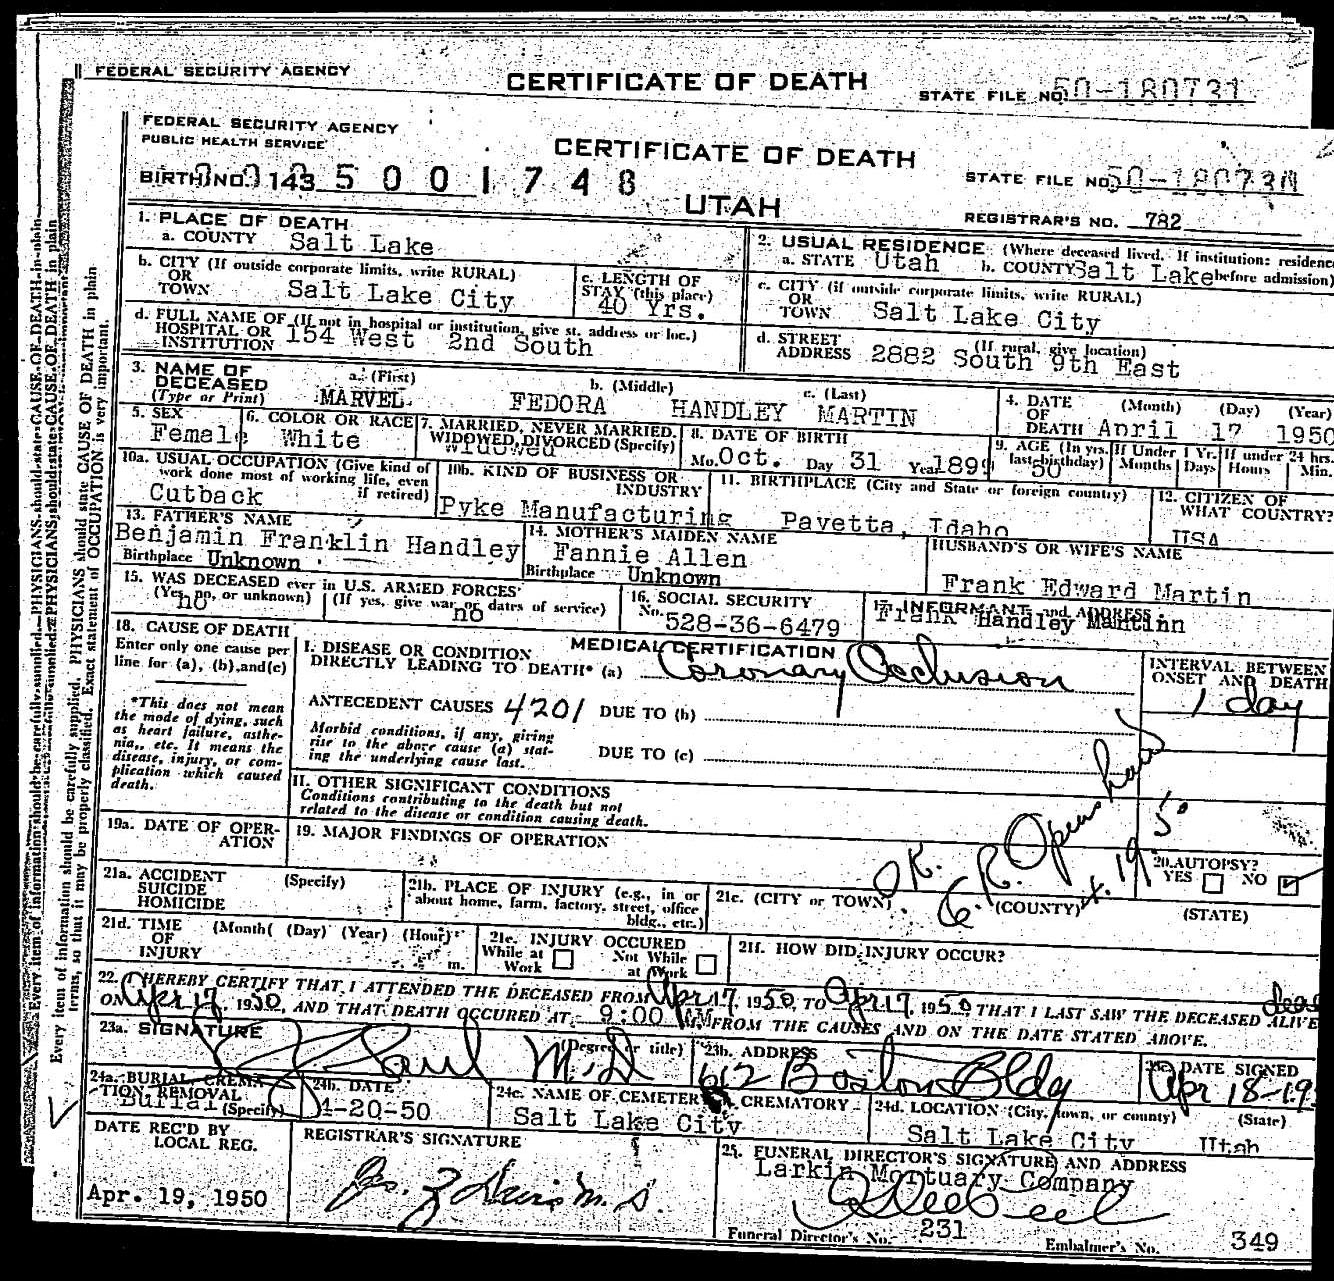 FEDERAL SECURITY AGENCY
CERTIFICATE OF DEATH
STATE FILE NO. 50-180731
FEDERAL SECURITY AGENCY
PUBLIC HEALTH SERVICE
CERTIFICATE OF DEATH
BIRTH NO. 143 5 0 0 1 7 4 8
STATE FILE NO.
UTAH
REGISTRAR'S NO. 782
1. PLACE OF DEATH
a. COUNTY Salt Lake
2. USUAL RESIDENCE (Where deceased lived. If institution: residence
a. STATE Utah b. COUNTY Salt Lake before admission)
b. CITY (If outside corporate limits, write RURAL)
OR
TOWN Salt Lake City
c. LENGTH OF
STAY (this place)
40 Yrs.
c. CITY (if outside corporate limits, write RURAL)
OR
TOWN Salt Lake City
d. FULL NAME OF (If not in hospital or institution, give st. address or loc.)
HOSPITAL OR
INSTITUTION 154 West 2nd South
d. STREET (If rural, give location)
ADDRESS 2882 South 9th East
3. NAME OF
DECEASED
(Type or Print)
a. (First) b. (Middle) c. (Last)
MARVEL FEDORA HANDLEY MARTIN
4. DATE (Month) (Day) (Year)
OF
DEATH April 17 1950
5. SEX
Female
6. COLOR OR RACE
White
7. MARRIED, NEVER MARRIED,
WIDOWED, DIVORCED (Specify)
Widowed
8. DATE OF BIRTH
Mo. Oct. Day 31 Year 1899
9. AGE (In yrs. last birthday)
50
If Under 1 Yr.
Months Days
If under 24 hrs.
Hours Min.
10a. USUAL OCCUPATION (Give kind of
work done most of working life, even
if retired)
Cutback
10b. KIND OF BUSINESS OR
INDUSTRY
Pyke Manufacturing
11. BIRTHPLACE (City and State or foreign country)
Pavetta, Idaho
12. CITIZEN OF
WHAT COUNTRY?
USA
13. FATHER'S NAME
Benjamin Franklin Handley
Birthplace Unknown
14. MOTHER'S MAIDEN NAME
Fannie Allen
Birthplace Unknown
HUSBAND'S OR WIFE'S NAME
Frank Edward Martin
15. WAS DECEASED ever in U.S. ARMED FORCES
(Yes, no, or unknown) (If yes, give war or dates of service)
no no
16. SOCIAL SECURITY
No. 528-36-6479
17. INFORMANT and ADDRESS
Frank Handley Martin
18. CAUSE OF DEATH
Enter only one cause per
line for (a), (b), and (c)
*This does not mean
the mode of dying, such
as heart failure, asthe-
nia, etc. It means the
disease, injury, or com-
plication which caused
death.
MEDICAL CERTIFICATION
I. DISEASE OR CONDITION
DIRECTLY LEADING TO DEATH* (a) Coronary Occlusion
INTERVAL BETWEEN
ONSET AND DEATH
1 day
ANTECEDENT CAUSES 4201 DUE TO (b)
Morbid conditions, if any, giving
rise to the above cause (a) stat-
ing the underlying cause last.
DUE TO (c)
II. OTHER SIGNIFICANT CONDITIONS
Conditions contributing to the death but not
related to the disease or condition causing death.
19a. DATE OF OPER-
ATION
19. MAJOR FINDINGS OF OPERATION
OK.
20. AUTOPSY?
YES NO
21a. ACCIDENT
SUICIDE
HOMICIDE
(Specify)
21b. PLACE OF INJURY (e.g., in or
about home, farm, factory, street, office
bldg., etc.)
21c. (CITY or TOWN) (COUNTY) (STATE)
21d. TIME
OF
INJURY
(Month( (Day) (Year) (Hour)
m.
21e. INJURY OCCURED
While at
Work
Not While
at Work
21f. HOW DID INJURY OCCUR?
22. I HEREBY CERTIFY THAT I ATTENDED THE DECEASED FROM Apr 17, 1950, TO Apr 17 1950 THAT I LAST SAW THE DECEASED ALIVE dead
ON Apr 17, 1950, AND THAT DEATH OCCURED AT 9:00 AM FROM THE CAUSES AND ON THE DATE STATED ABOVE.
23a. SIGNATURE (Degree or title)
M.D
23b. ADDRESS
612 Boston Bldg
23c. DATE SIGNED
Apr 18-19
24a. BURIAL, CREMA-
TION REMOVAL
(Specify)
Burial
24b. DATE
4-20-50
24c. NAME OF CEMETERY OR CREMATORY
Salt Lake City
24d. LOCATION (City, town, or county) (State)
Salt Lake City Utah
DATE REC'D BY
LOCAL REG.
Apr. 19, 1950
REGISTRAR'S SIGNATURE
25. FUNERAL DIRECTOR'S SIGNATURE AND ADDRESS
Larkin Mortuary Company
Funeral Director's No. 231
Embalmer's No. 349
Every item of information should be carefully supplied. PHYSICIANS should state CAUSE OF DEATH in plain
terms, so that it may be properly classified. Exact statement of OCCUPATION is very important.